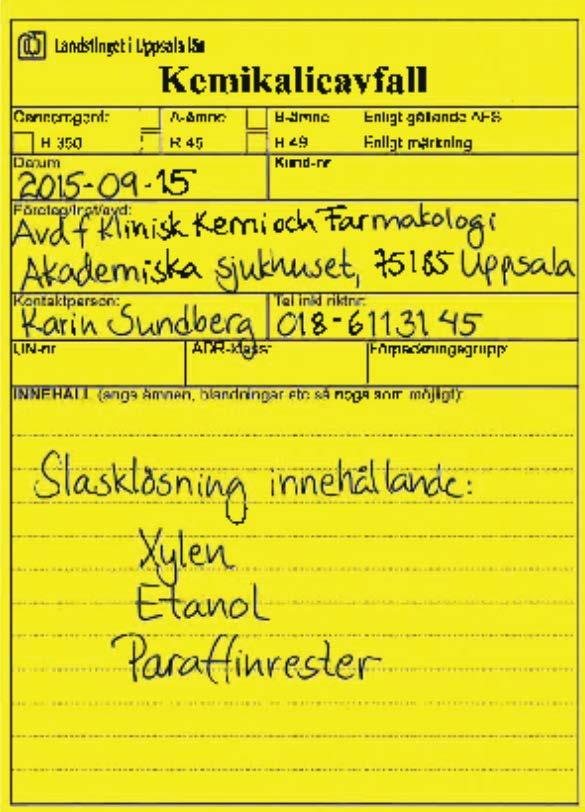 Landstinget i Uppsala län
Kemikalieavfall
Cancerogent: A-ämne B-ämne Enligt gällande AFS
H 350 R 45 R 49 Enligt märkning
Datum Kund-nr
2015-09-15
Företag/Inst/avd:
Avd f Klinisk Kemi och Farmakologi
Akademiska sjukhuset, 75185 Uppsala
Kontaktperson: Tel inkl riktnr:
Karin Sundberg 018-611 31 45
UN-nr ADR-klass: Förpackningsgrupp:
INNEHÅLL (ange ämnen, blandningar etc så noga som möjligt):
Slasklösning innehållande:
Xylen
Etanol
Paraffinrester